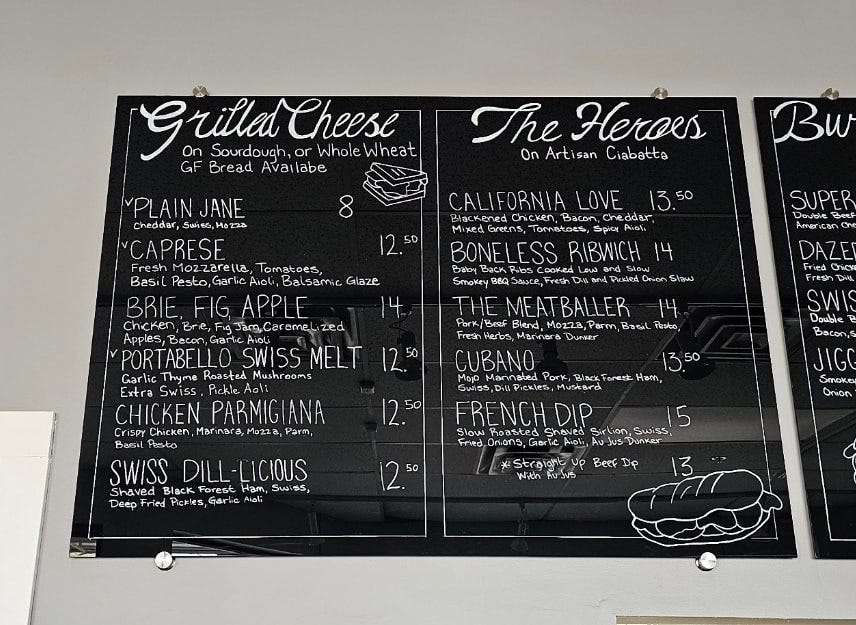 Grilled Cheese
On Sourdough, or Whole Wheat
GF Bread Availabe
✓PLAIN JANE 8
Cheddar, Swiss, Mozza
✓CAPRESE 12.50
Fresh Mozzarella, Tomatoes,
Basil Pesto, Garlic Aioli, Balsamic Glaze
BRIE, FIG, APPLE 14
Chicken, Brie, Fig Jam, Caramelized
Apples, Bacon, Garlic Aioli
✓PORTABELLO SWISS MELT 12.50
Garlic Thyme Roasted Mushrooms
Extra Swiss, Pickle Aioli
CHICKEN PARMIGIANA 12.50
Crispy Chicken, Marinara, Mozza, Parm,
Basil Pesto
SWISS DILL-LICIOUS 12.50
Shaved Black Forest Ham, Swiss,
Deep Fried Pickles, Garlic Aioli
The Heroes
On Artisan Ciabatta
CALIFORNIA LOVE 13.50
Blackened Chicken, Bacon, Cheddar,
Mixed Greens, Tomatoes, Spicy Aioli
BONELESS RIBWICH 14
Baby Back Ribs Cooked Low and Slow
Smokey BBQ Sauce, Fresh Dill and Pickled Onion Slaw
THE MEATBALLER 14
Pork/Beef Blend, Mozza, Parm, Basil Pesto,
Fresh Herbs, Marinara Dunker
CUBANO 13.50
Mojo Marinated Pork, Black Forest Ham,
Swiss, Dill Pickles, Mustard
FRENCH DIP 15
Slow Roasted Shaved Sirlion, Swiss,
Fried Onions, Garlic Aioli, Au Jus Dunker
* Straight Up Beef Dip 13
With Au Jus
Bur
SUPER
Double Beef
American Che
DAZE
Fried Chick
Fresh Dill
SWIS
Double B
Bacon, S
JIGG
Smoke
Onion